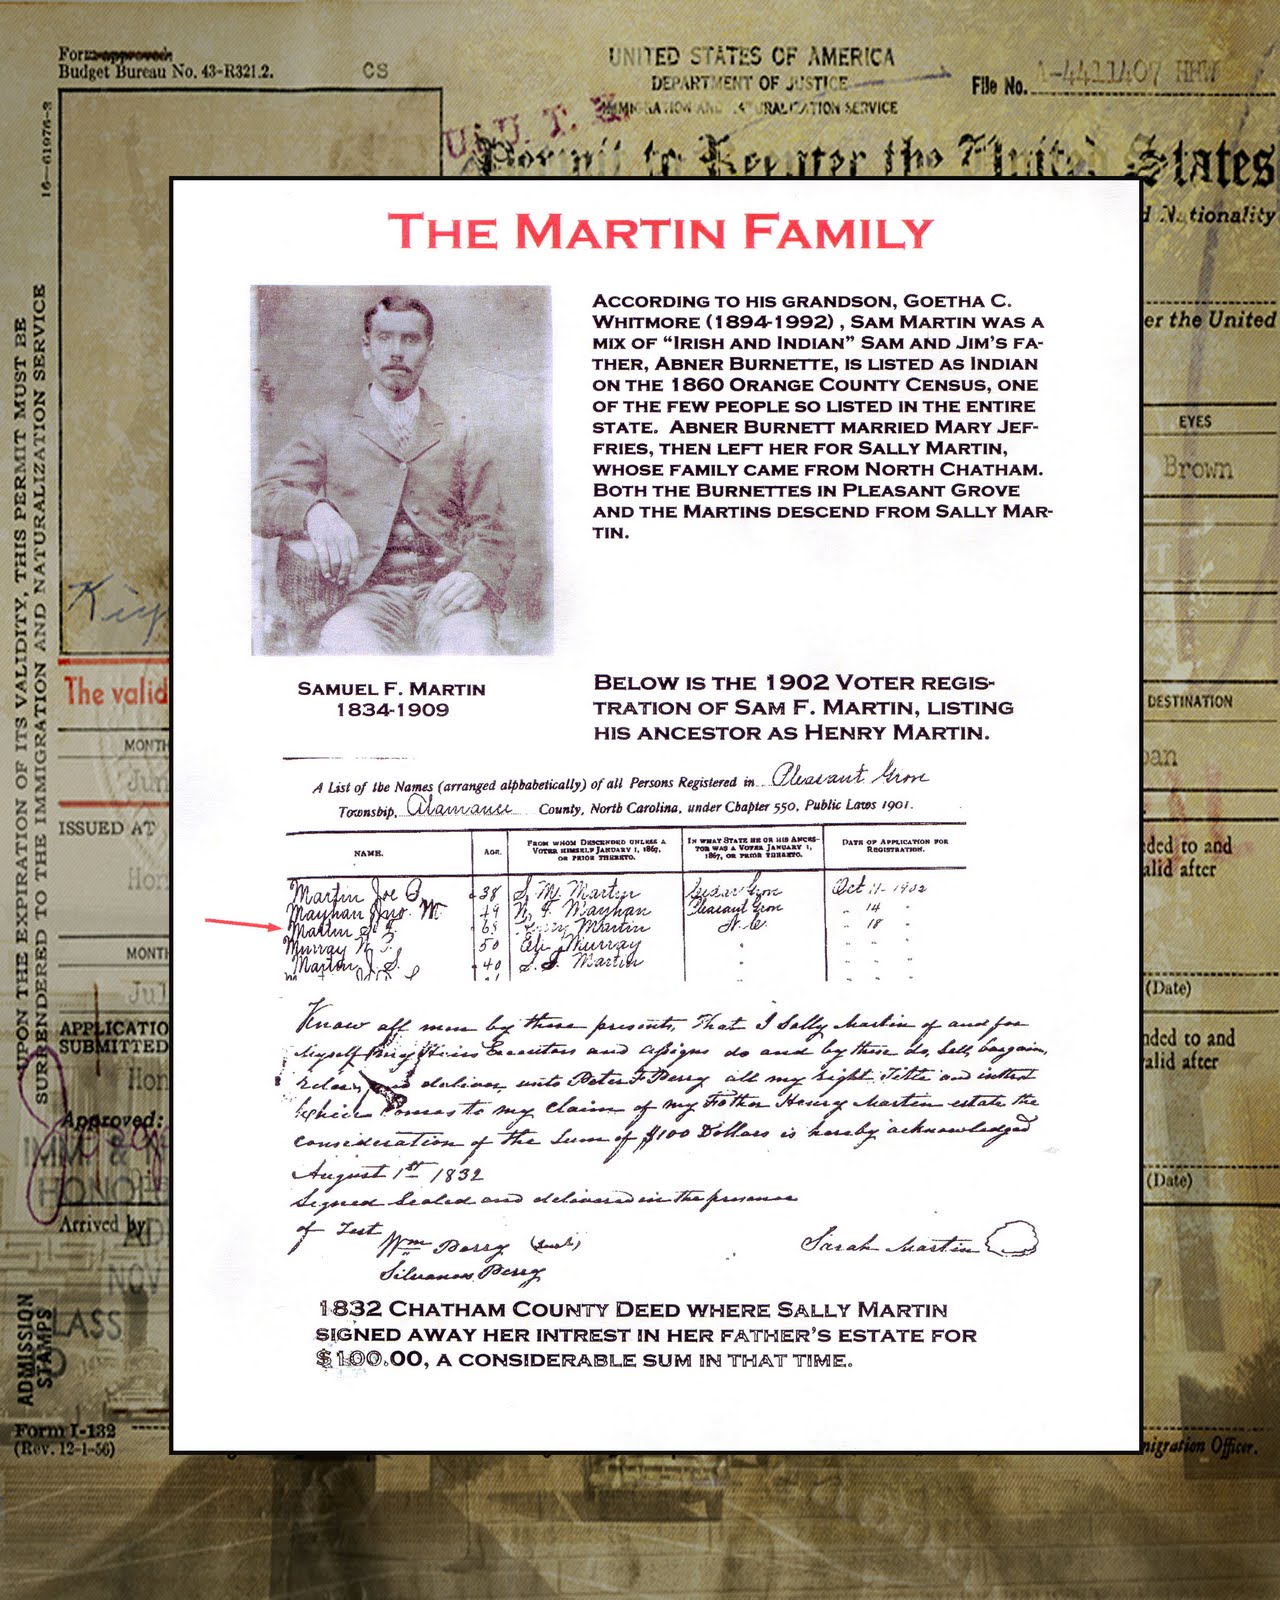 Form approved.
Budget Bureau No. 43-R321.2.
CS
UNITED STATES OF AMERICA
DEPARTMENT OF JUSTICE
IMMIGRATION AND NATURALIZATION SERVICE
File No. A-4411407 HHW
16—61976-3
Permit to Reenter the United States
Nationality
er the United
UPON THE EXPIRATION OF ITS VALIDITY, THIS PERMIT MUST BE
SURRENDERED TO THE IMMIGRATION AND NATURALIZATION SERVICE
THE MARTIN FAMILY
ACCORDING TO HIS GRANDSON, GOETHA C.
WHITMORE (1894-1992) , SAM MARTIN WAS A
MIX OF “IRISH AND INDIAN” SAM AND JIM’S FA-
THER, ABNER BURNETTE, IS LISTED AS INDIAN
ON THE 1860 ORANGE COUNTY CENSUS, ONE
OF THE FEW PEOPLE SO LISTED IN THE ENTIRE
STATE. ABNER BURNETT MARRIED MARY JEF-
FRIES, THEN LEFT HER FOR SALLY MARTIN,
WHOSE FAMILY CAME FROM NORTH CHATHAM.
BOTH THE BURNETTES IN PLEASANT GROVE
AND THE MARTINS DESCEND FROM SALLY MAR-
TIN.
EYES
Brown
SAMUEL F. MARTIN
1834-1909
BELOW IS THE 1902 VOTER REGIS-
TRATION OF SAM F. MARTIN, LISTING
HIS ANCESTOR AS HENRY MARTIN.
The valid
MONTH
Jun
ISSUED AT
Hon
MONTH
Jul
APPLICATIO
SUBMITTED
Hon
Approved:
Arrived by
DESTINATION
pan
ded to and
alid after
(Date)
nded to and
alid after
(Date)
A List of the Names (arranged alphabetically) of all Persons Registered in Pleasant Grove
Township, Alamance County, North Carolina, under Chapter 550, Public Laws 1901.
NAME.
AGE.
FROM WHOM DESCENDED UNLESS A
VOTER HIMSELF JANUARY 1, 1867,
OR PRIOR THERETO.
IN WHAT STATE HE OR HIS ANCES-
TOR WAS A VOTER JANUARY 1,
1867, OR PRIOR THERETO.
DATE OF APPLICATION FOR
REGISTRATION.
Martin Joe 38 S. M. Martin Oct 11 1902
Mayhan Jno. M 49 Mayhan Pleasant Grove " 14 "
Martin S. F. 68 Henry Martin N. C. " 18 "
Murray 50 Eli Murray
Martin J. S. 40 S. F. Martin
Know all men by these presents, That I Sally Martin of and for
Myself my Heirs Executors and assigns do and by these do, Sell, bargain,
Release and deliver unto Peter F Perry all my right Title and intrest
which comes to my claim of my Father Henry Martin estate the
consideration of the Sum of $100 Dollars is hereby acknowledged
August 1st 1832
Signed Sealed and delivered in the presence
of Test
Wm Perry (Seal)
Silvanos Perry
Sarah Martin
1832 CHATHAM COUNTY DEED WHERE SALLY MARTIN
SIGNED AWAY HER INTREST IN HER FATHER’S ESTATE FOR
$100.00, A CONSIDERABLE SUM IN THAT TIME.
ADMISSION
STAMPS
Form I-132
(Rev. 12-1-56)
migration Officer.